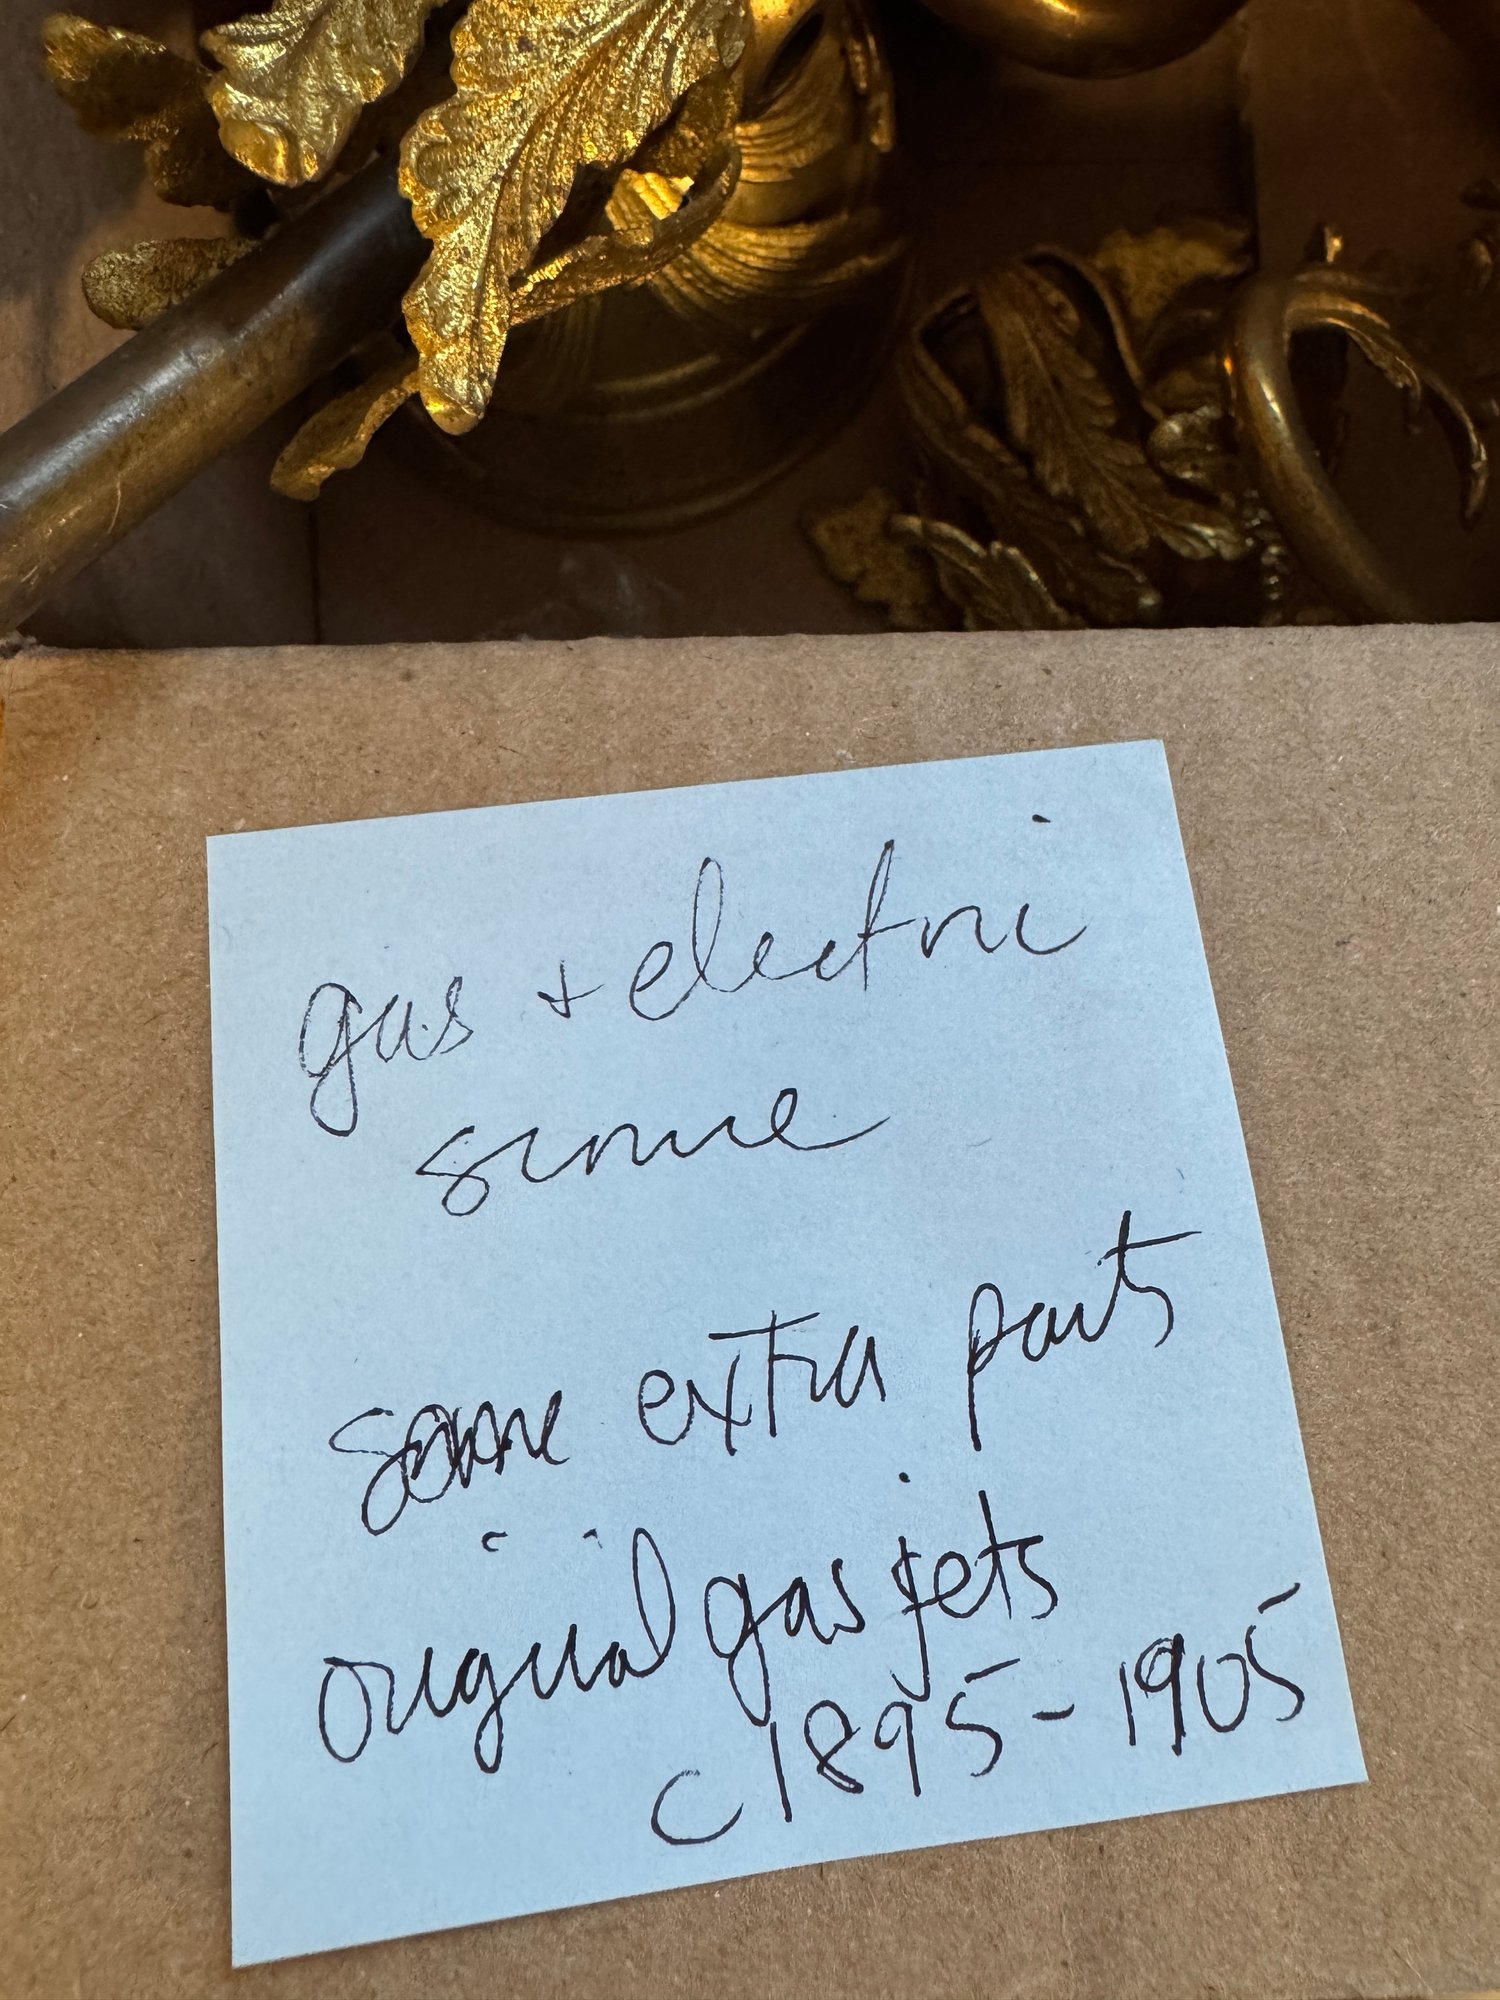 gas + electric
sconce
some extra parts
original gas jets
c 1895-1905